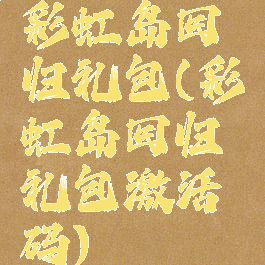 彩虹岛回
归礼包(彩
虹岛回归
礼包激活
码)